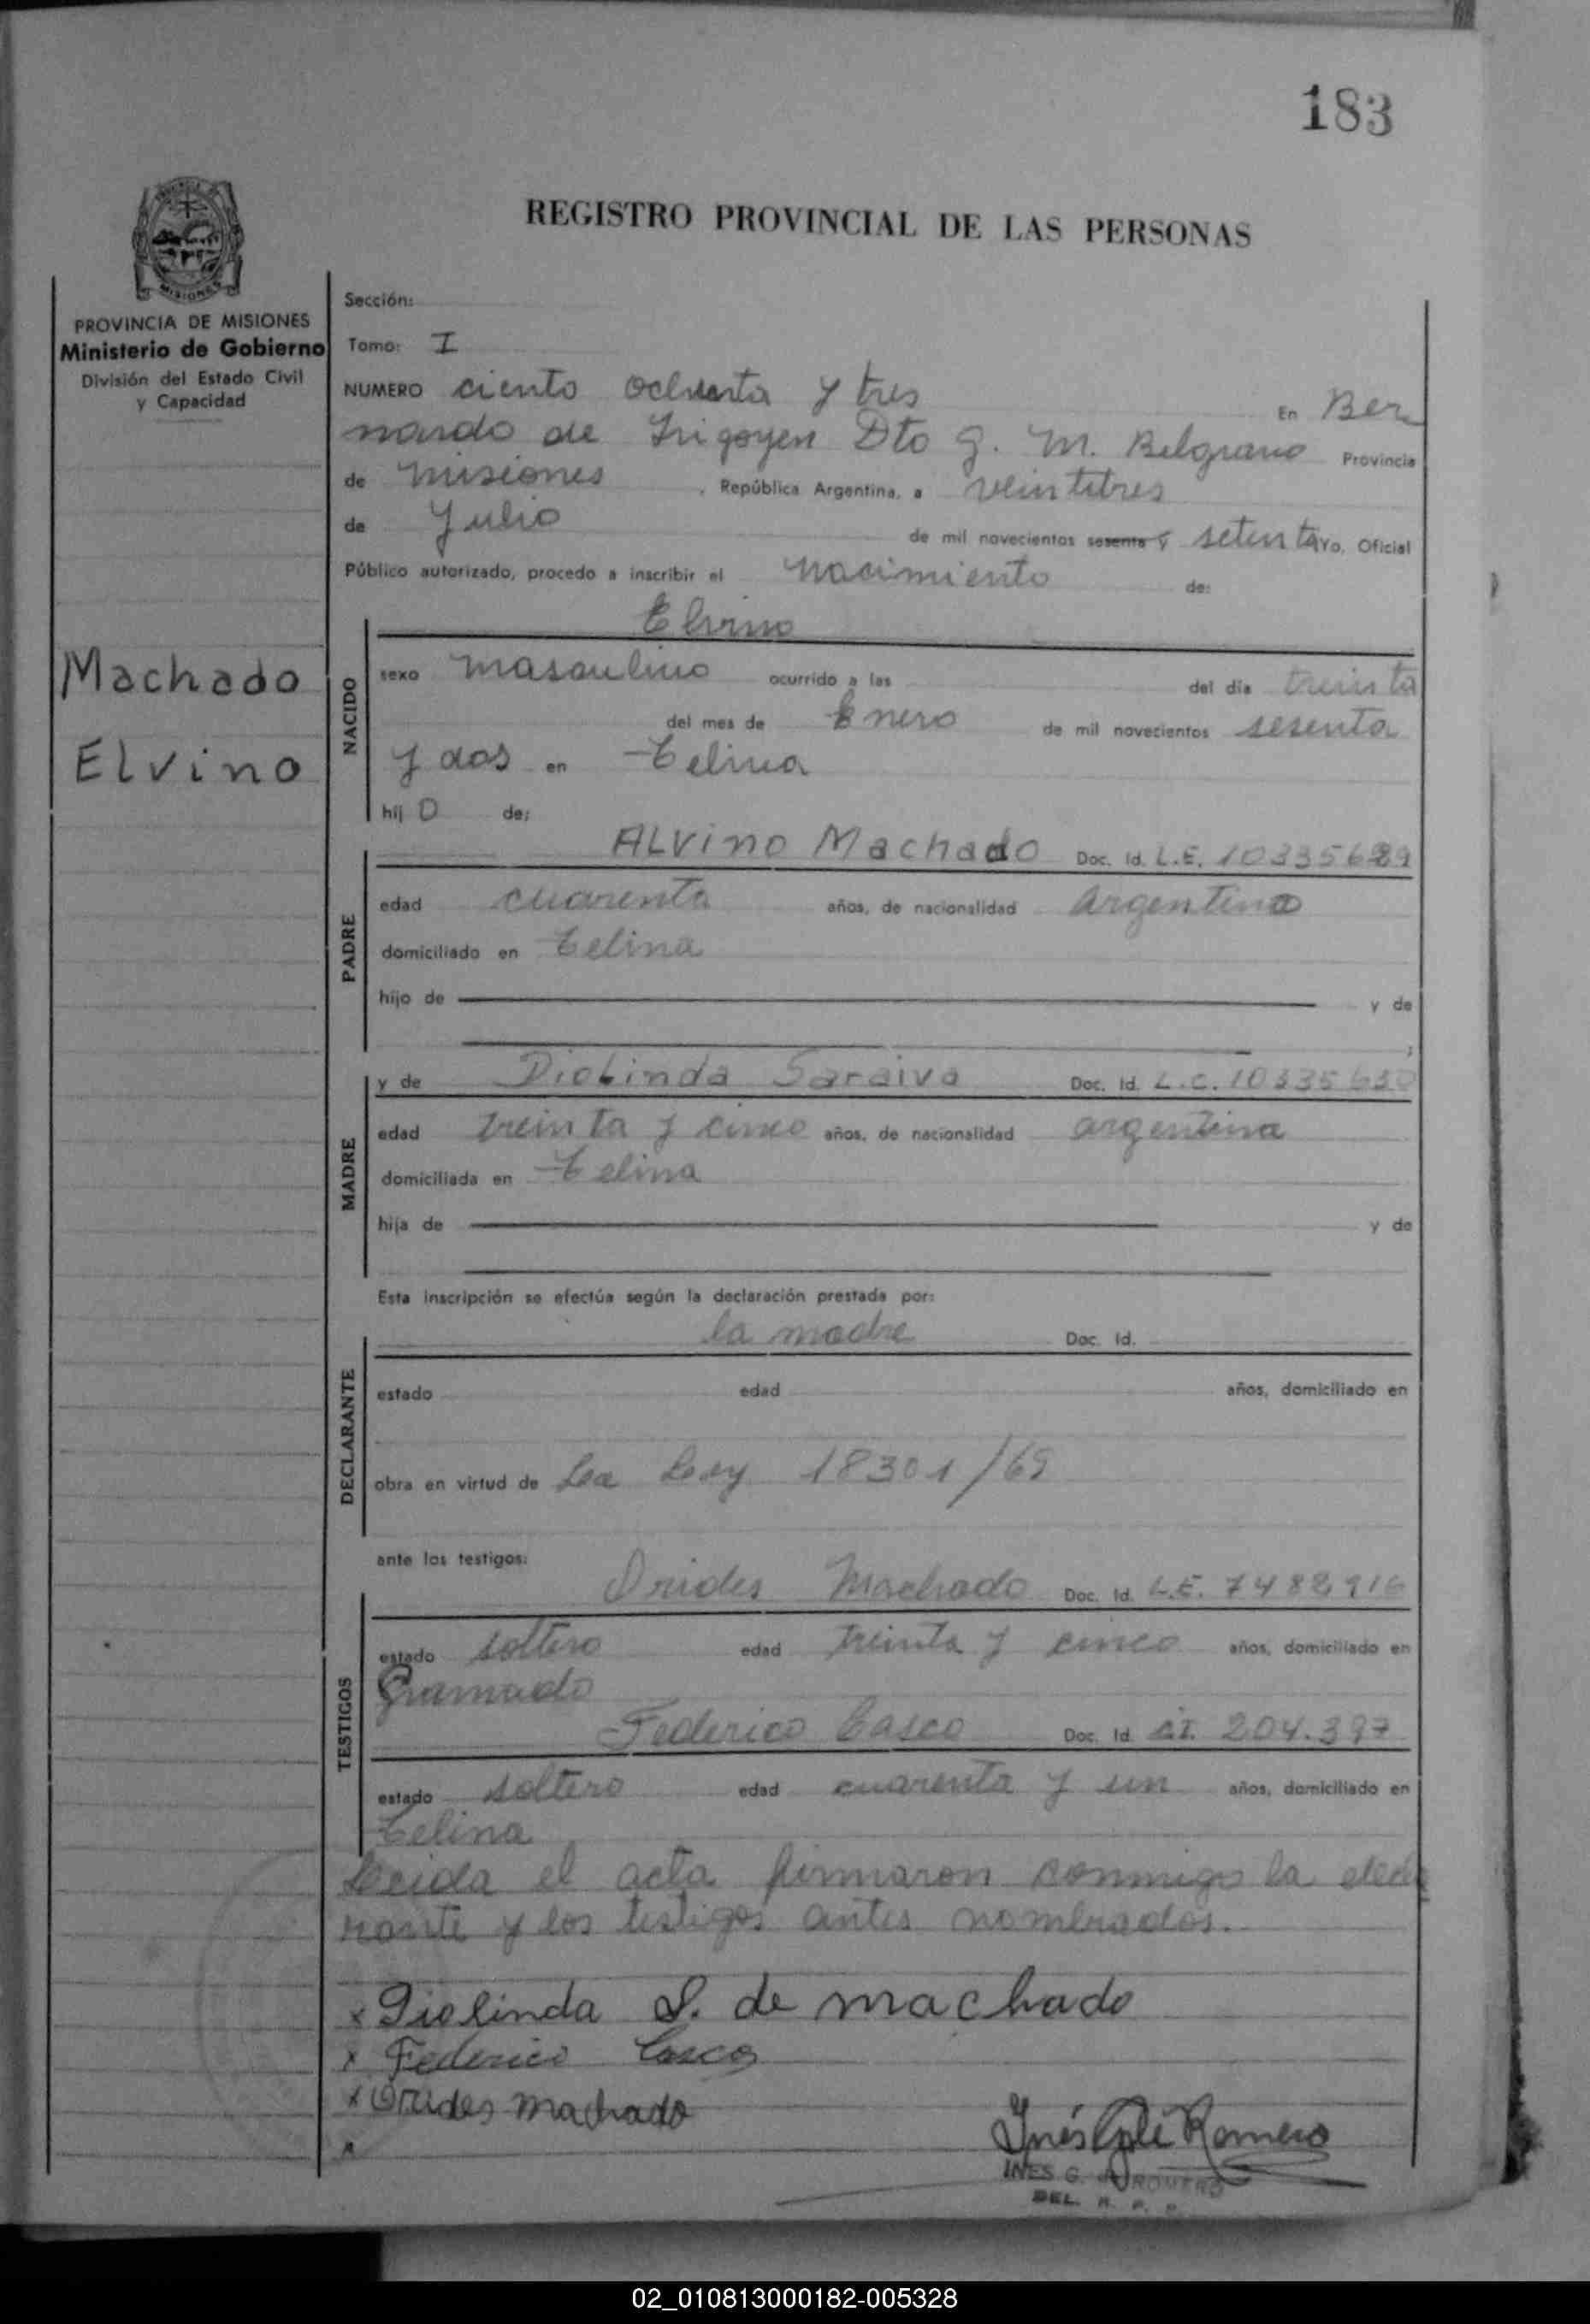 183
REGISTRO PROVINCIAL DE LAS PERSONAS
MISIONES
PROVINCIA DE MISIONES
Ministerio de Gobierno
División del Estado Civil
y Capacidad
Machado
Elvino
Sección:
Tomo: I
NUMERO ciento ochenta y tres En Ber
nardo de Irigoyen Dto G. M. Belgrano Provincia
de Misiones, República Argentina, a veintitres
de Julio de mil novecientos sesenta y setenta Yo, Oficial
Público autorizado, procedo a inscribir el nacimiento de:
Elvino
NACIDO
sexo masculino ocurrido a las del día treinta
del mes de Enero de mil novecientos sesenta
y dos en Celina
hij o de:
PADRE
ALvino Machado Doc. Id. L.E. 10335629
edad cuarenta años, de nacionalidad argentino
domiciliado en Celina
hijo de y de
;
MADRE
y de Diolinda Saraiva Doc. Id. L.C. 10335630
edad treinta y cinco años, de nacionalidad argentina
domiciliada en Celina
hija de y de
Esta inscripción se efectúa según la declaración prestada por:
DECLARANTE
la madre Doc. Id.
estado edad años, domiciliado en
obra en virtud de La Ley 18301/69
ante los testigos:
TESTIGOS
Orides Machado Doc. Id. L.E. 7488916
estado soltero edad treinta y cinco años, domiciliado en
Gramado
Federico Casco Doc. Id. C.I. 204.397
estado soltero edad cuarenta y un años, domiciliado en
Celina
Leida el acta firmaron conmigo la decla
rante y los testigos antes nombrados.
x Diolinda S. de machado
x Federico Casco
x Orides machado
Inés Romero
INES G. ROMERO
DEL. R. P. P.
02_010813000182-005328